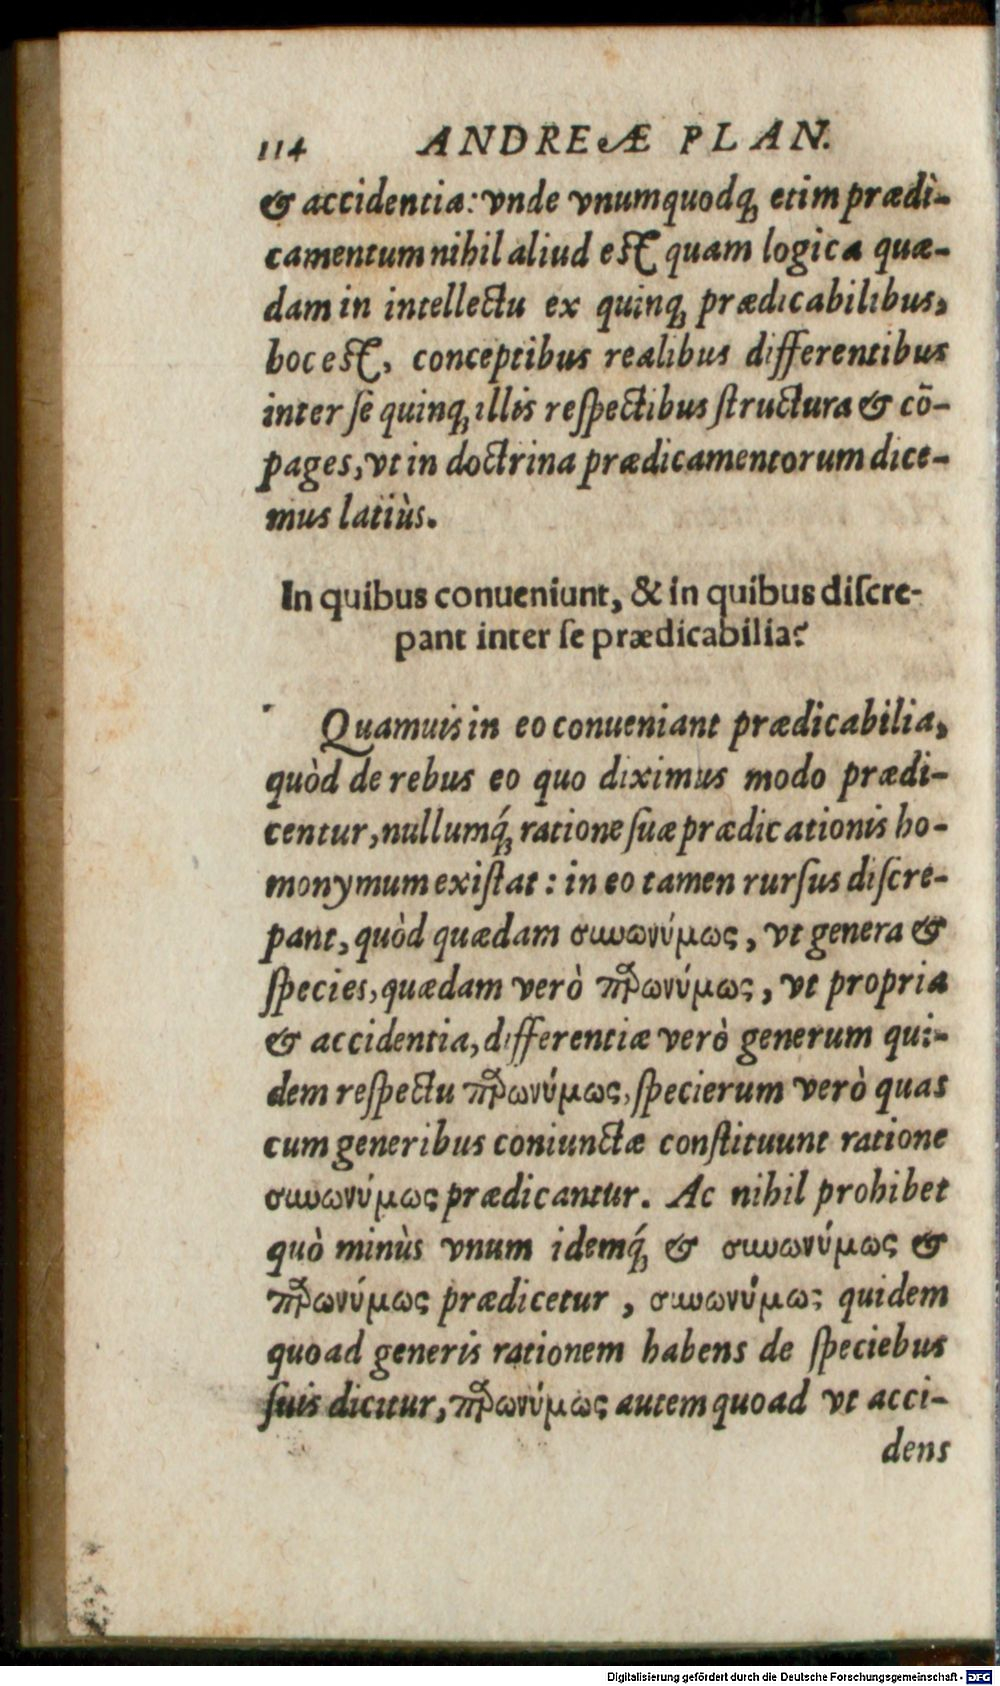 114 ANDREÆ PLAN.
& accidentia: vnde vnumquodq́; etim prædi-
camentum nihil aliud est quam logica quæ-
dam in intellectu ex quinq; prædicabilibus,
hoc est, conceptibus realibus differentibus
inter ſe quinq; illis reſpectibus ſtructura & cō-
pages, vt in doctrina prædicamentorum dice-
mus latiùs.
In quibus conueniunt, & in quibus diſcre-
pant inter ſe prædicabilia?
Quamuis in eo conueniant prædicabilia,
quòd de rebus eo quo diximus modo prædi-
centur, nullumq́; ratione ſuæ prædicationis ho-
monymum exiſtat: in eo tamen rurſus diſcre-
pant, quòd quædam συνωνύμως, vt genera &
ſpecies, quædam verò παρωνύμως, vt propria
& accidentia, differentiæ verò generum qui-
dem reſpectu παρωνύμως, ſpecierum verò quas
cum generibus coniunctæ conſtituunt ratione
συνωνύμως prædicantur. Ac nihil prohibet
quò minùs vnum idemq́; & συνωνύμως &
παρωνύμως prædicetur, συνωνύμως quidem
quoad generis rationem habens de ſpeciebus
ſuis dicitur, παρωνύμως autem quoad vt acci-
dens
Digitalisierung gefördert durch die Deutsche Forschungsgemeinschaft - DFG